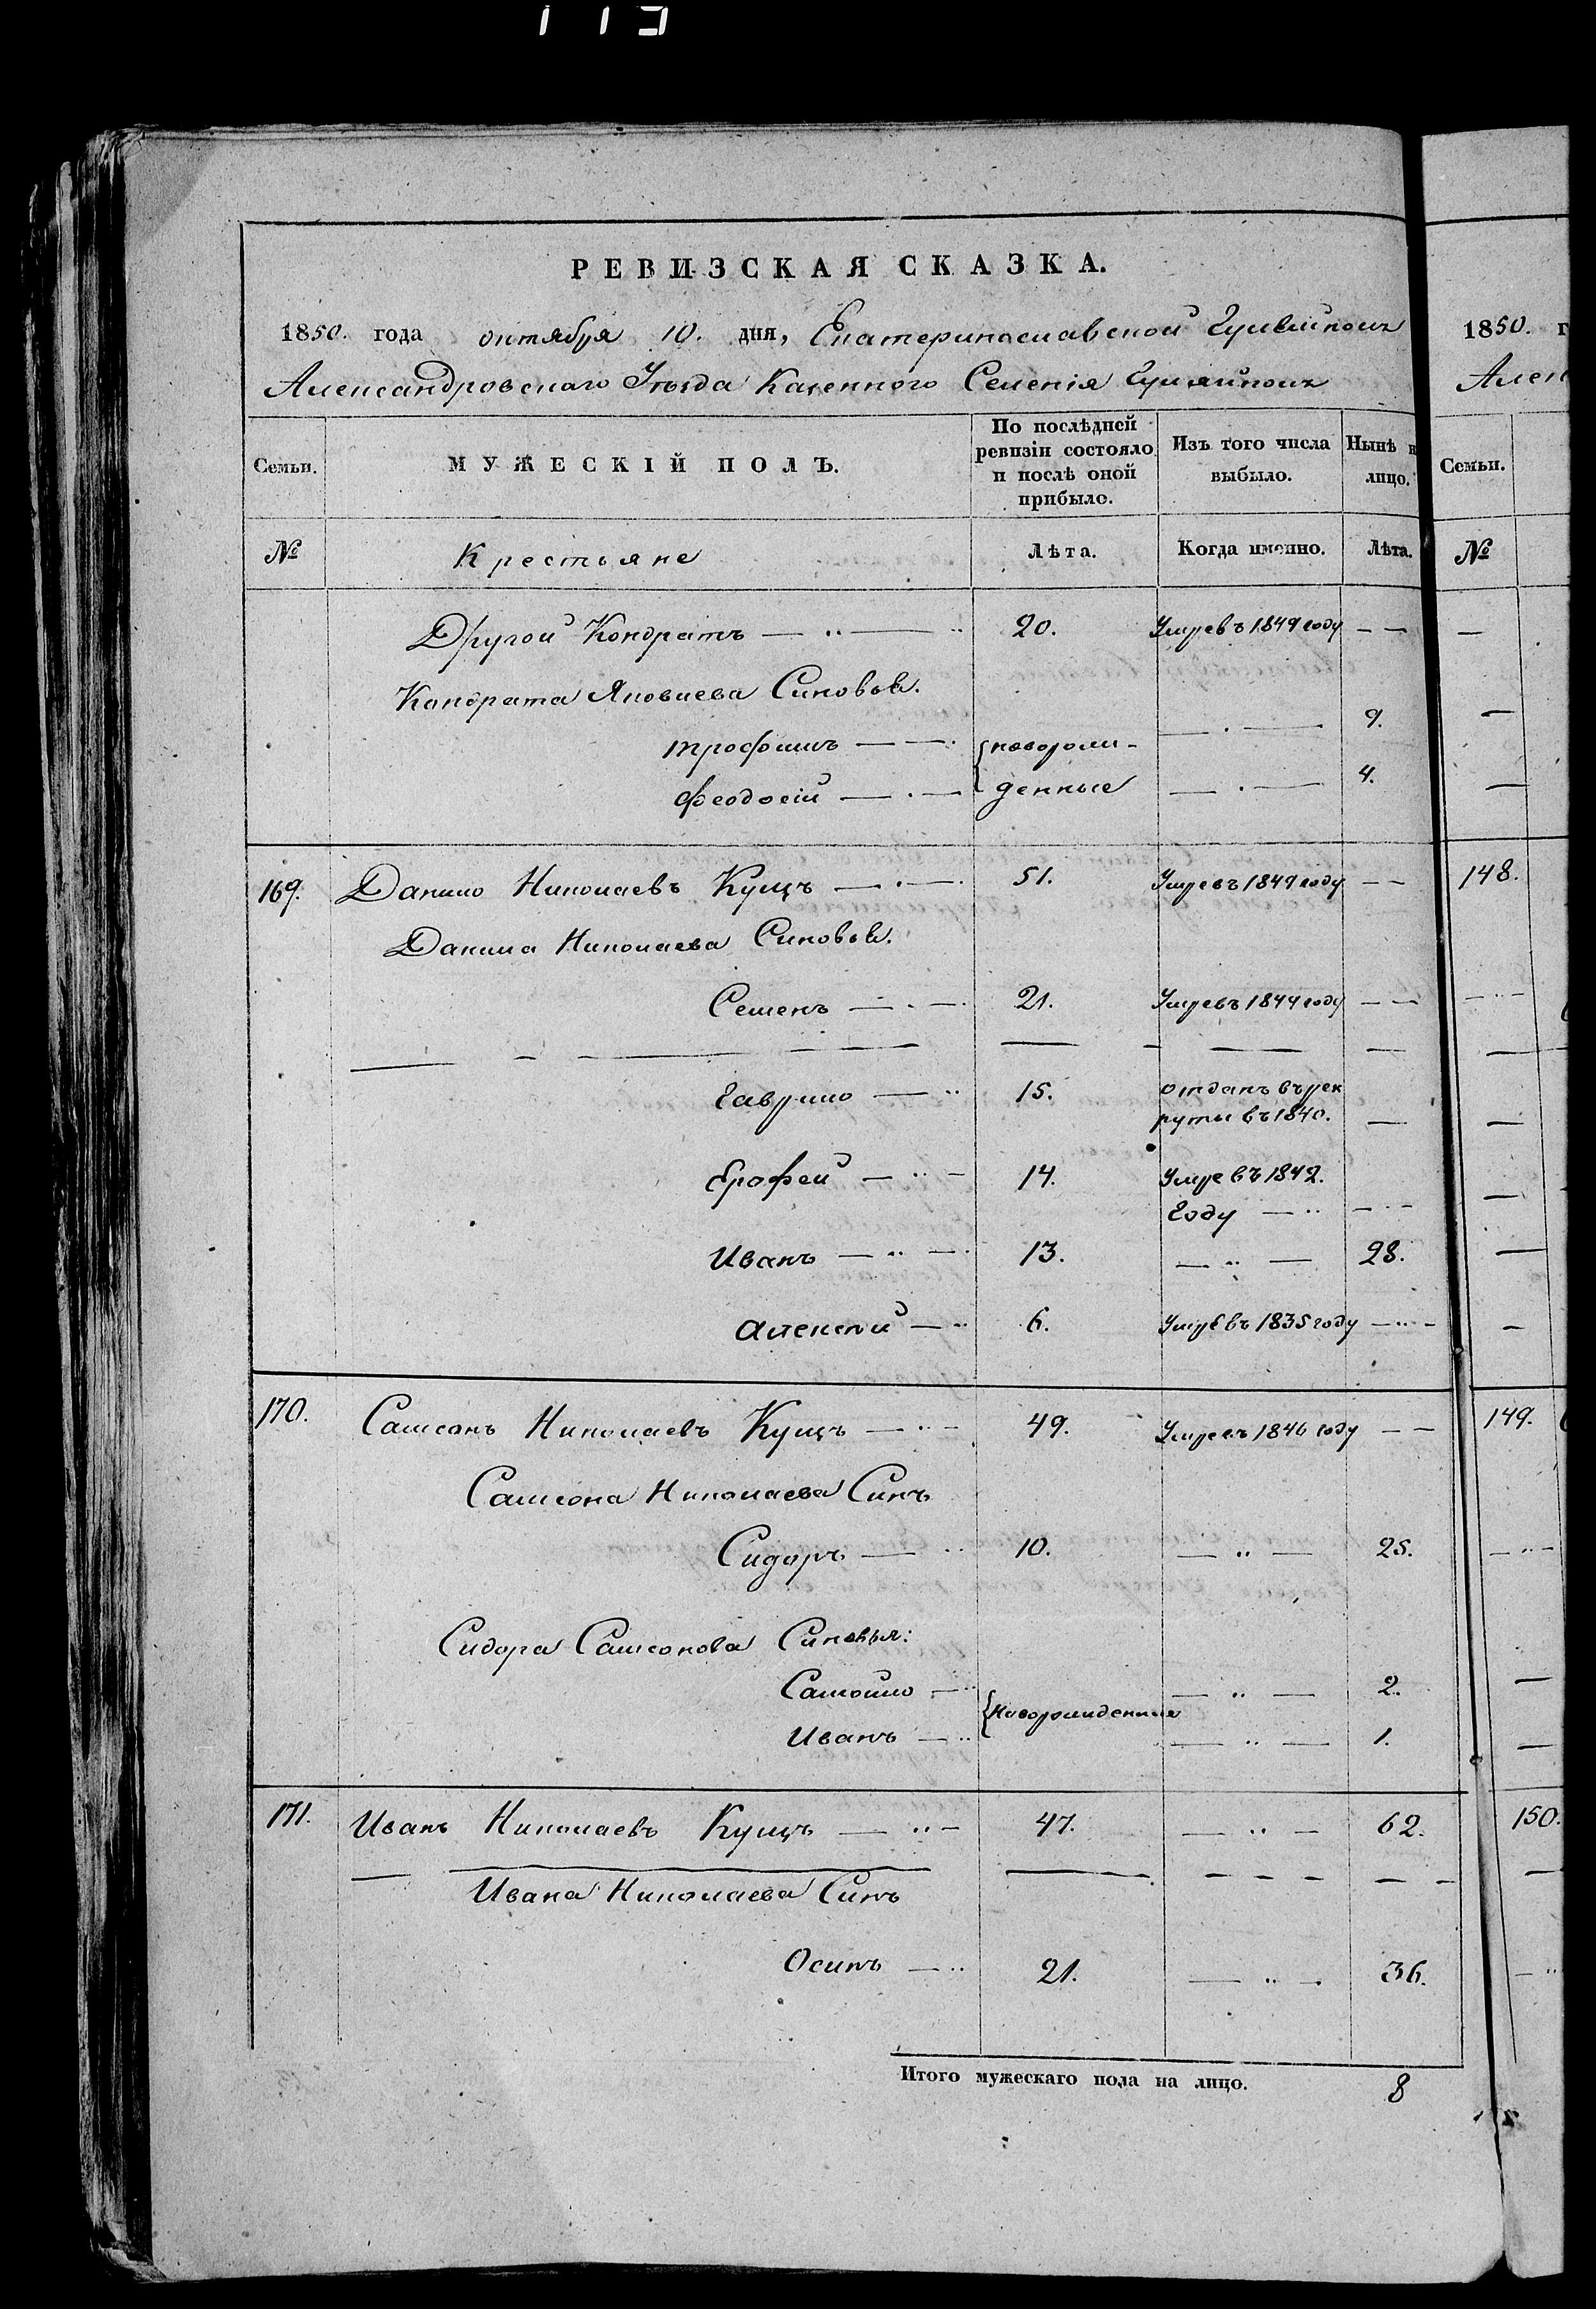 113
РЕВИЗСКАЯ СКАЗКА.
1850. года октября 10. дня, Екатеринославской Губерніи
Александровскаго Уѣзда Казенного Селенія Гуляйполя
Семьи. МУЖЕСКІЙ ПОЛЪ. По послѣдней ревизіи состояло и послѣ оной прибыло. Изъ того числа выбыло. Нынѣ н лицо.
№ Крестьяне Лѣта. Когда именно. Лѣта.
Другой Кондратъ 20. Умре въ 1849 году
Кондрата Яковлева Синовья.
Трофимъ {новорож- 9.
Феодосій денные 4.
169. Данило Николаевъ Кущъ 51. Умре въ 1849 году
Данила Николаева Синовья.
Семенъ 21. Умре въ 1844 году
Гаврило 15. отданъ въ рек
руты въ 1840.
Ерофей 14. Умре въ 1842.
Году
Иванъ 13. 28.
Алексей 6. Умре въ 1835 году
170. Самсонъ Николаевъ Кущъ 49. Умре въ 1846 году
Самсона Николаева Синъ
Сидоръ 10. 25.
Сидора Самсонова Синовья:
Самойло {Новорожденные 2.
Иванъ 1.
171. Иванъ Николаевъ Кущъ 47. 62.
Ивана Николаева Синъ
Осипъ 21. 36.
Итого мужескаго пола на лицо. 8
1850. г
Ален
Семьи.
№
148.
149.
150.